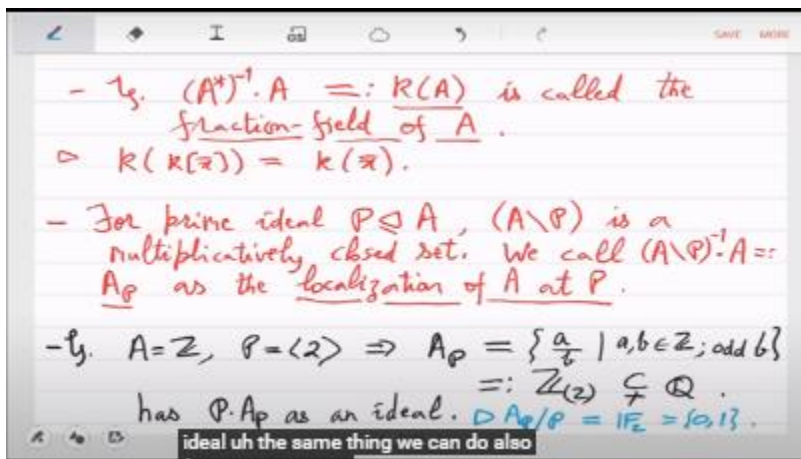 SAVE MORE
- Eg. (A*)⁻¹·A =: k(A) is called the
fraction-field of A.
▷ k(k[x̄]) = k(x̄).
- For prime ideal P⊴A, (A\P) is a
multiplicatively closed set. We call (A\P)⁻¹·A =:
A_P as the localization of A at P.
- Eg. A=ℤ, P=⟨2⟩ ⇒ A_P = {a/b | a,b∈ℤ; odd b}
=: ℤ₍₂₎ ⊊ ℚ.
has P·A_P as an ideal. ▷ A_P/P = 𝔽₂ = {0,1}.
ideal uh the same thing we can do also